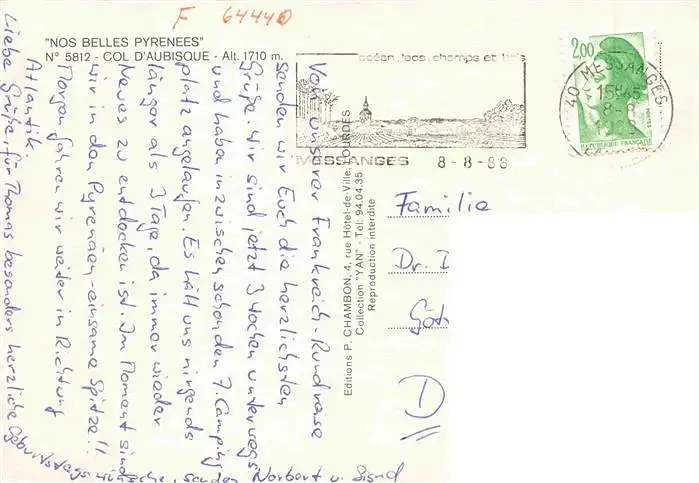 F 64440
"NOS BELLES PYRENEES"
N° 5812 - COL D'AUBISQUE - Alt. 1710 m.
océan, lacs, champs et bois
MESSANGES 8-8-88
2,00
40 MESSANGES
15H45
8-8
REPUBLIQUE FRANÇAISE
Von unserer Frankreich-Rundreise
senden wir Euch die herzlichsten
Grüße. Wir sind jetzt 3 Wochen unterwegs
und haben inzwischen schon den 7. Camping
platz angelaufen. Es hält uns nirgends
länger als 3 Tage, da immer wieder
Neues zu entdecken ist. Im Moment sind
wir in den Pyrenäen - einsame Spitze!!
Morgen fahren wir weiter in Richtung
Atlantik.
Liebe Grüße, für Thomas besonders herzliche Geburtstagswünsche, senden Norbert u. Sigrid
Editions P. CHAMBON, 4, rue Hôtel-de-Ville, LOURDES
Collection "YAN" - Tél: 94.04.35
Reproduction interdite
Familie
Dr.
D